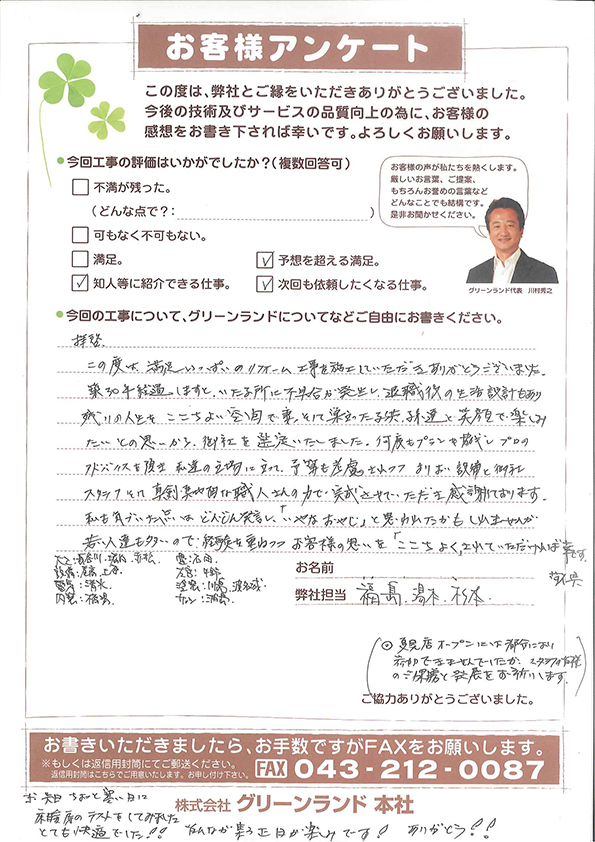 お客様アンケート
この度は、弊社とご縁をいただきありがとうございました。
今後の技術及びサービスの品質向上の為に、お客様の
感想をお書き下されば幸いです。よろしくお願いします。
●今回工事の評価はいかがでしたか？（複数回答可）
不満が残った。
（どんな点で？：　）
可もなく不可もない。
満足。
✓予想を超える満足。
✓知人等に紹介できる仕事。
✓次回も依頼したくなる仕事。
お客様の声が私たちを熱くします。
厳しいお言葉、ご提案、
もちろんお誉めの言葉など
どんなことでも結構です。
是非お聞かせください。
グリーンランド代表　川村秀之
●今回の工事について、グリーンランドについてなどご自由にお書きください。
拝啓
この度は満足いっぱいのリフォーム工事を施工していただきありがとうございました。
築30年経過しますと、いたる所に不具合が発生し、退職後の生活設計もあり
残りの人生をここちよい空間で妻、そして巣立った子供、孫達と笑顔で楽しみ
たいとの思いから御社を選定いたしました。何度もプランを
アドバイスを 私達の立場に立って、予算も考慮されつつ 設備と御社
スタッフそして真剣 な職人さんの力で完成させていただき感謝しております。
私も気づいた点はどんどん発言し、「いやなおやじ」と思われたかもしれませんが
若い人達も多いので経験を重ねつつお客様の思いを「ここちよく」されていただければ幸です。
大工：長谷川、
設備：
電気：清水
内装：
お名前
弊社担当　福島、　杉本
（◎ オープンには都合により
参加できませんでしたが、スタッフの皆様
のご保嬉と発展をお祈りします。）
ご協力ありがとうございました。
お書きいただきましたら、お手数ですがFAXをお願いします。
※もしくは返信用封筒にてご郵送ください。
返信用封筒はこちらでご用意いたします。お申し付け下さい。
FAX 043-212-0087
株式会社 グリーンランド 本社
ちょっと寒い日に
床暖房のテストをしてみました
とても快適でした！！　みんなが集る正月が楽みです！　ありがとう！！